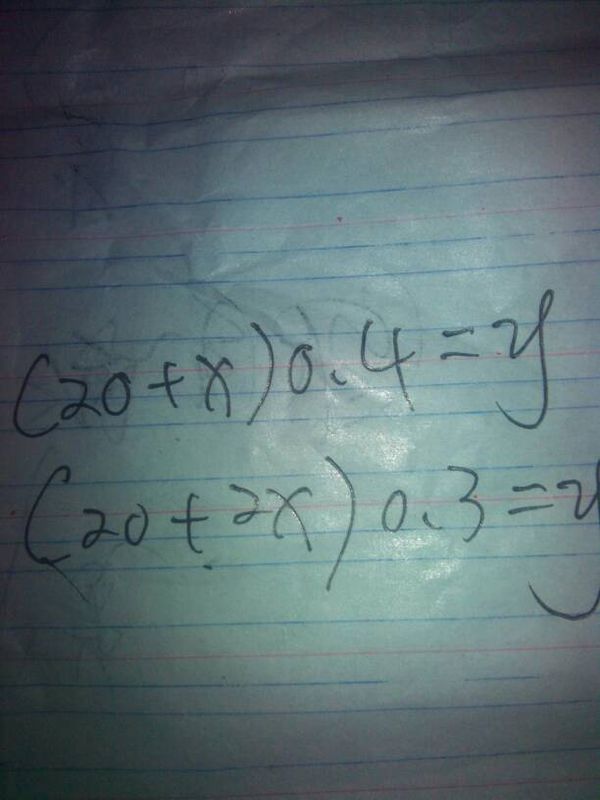 (20+x)0.4=y
(20+2x)0.3=y